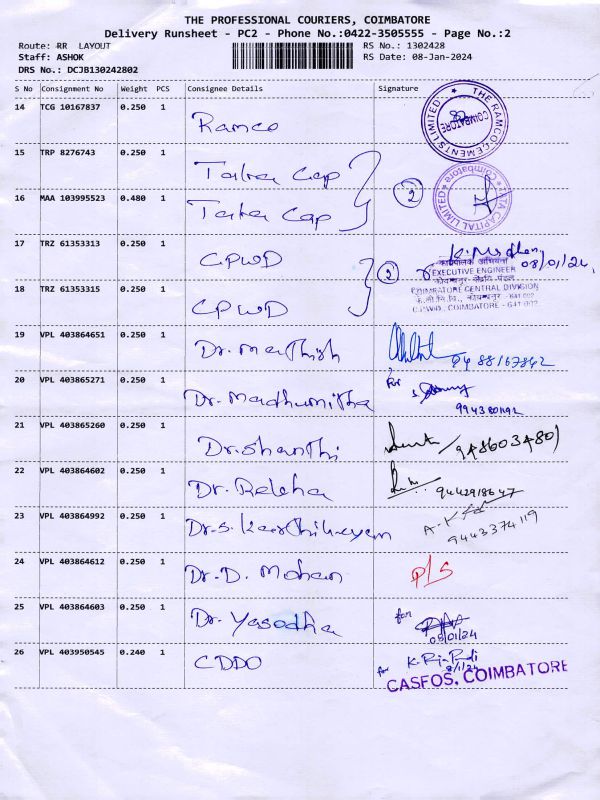 THE PROFESSIONAL COURIERS, COIMBATORE
Delivery Runsheet - PC2 - Phone No.:0422-3505555 - Page No.:2
Route: RR LAYOUT
RS No.: 1302428
Staff: ASHOK
RS Date: 08-Jan-2024
DRS No.: DCJB130242802
S No Consignment No Weight PCS Consignee Details Signature
14 TCG 10167837 0.250 1 Ramco
THE RAMCO CEMENTS LIMITED COIMBATORE
15 TRP 8276743 0.250 1 Tata Cap
16 MAA 103995523 0.480 1 Tata Cap 2
TATA CAPITAL LIMITED Coimbatore
17 TRZ 61353313 0.250 1 CPWD
08/01/24
2
EXECUTIVE ENGINEER
COIMBATORE CENTRAL DIVISION
C.P.W.D., COIMBATORE - 641 002
18 TRZ 61353315 0.250 1 CPWD
19 VPL 403864651 0.250 1 Dr. Marthish
20 VPL 403865271 0.250 1 Dr. Madhumitha for
21 VPL 403865260 0.250 1 Dr. Shanthi
22 VPL 403864602 0.250 1 Dr. Rekha
23 VPL 403864992 0.250 1 Dr. S. Karthikeyan
9443374119
24 VPL 403864612 0.250 1 Dr. D. Mohan P/S
25 VPL 403864603 0.250 1 Dr. Yasodha for
08/01/24
26 VPL 403950545 0.240 1 CDDO for
8/1/24
CASFOS, COIMBATORE